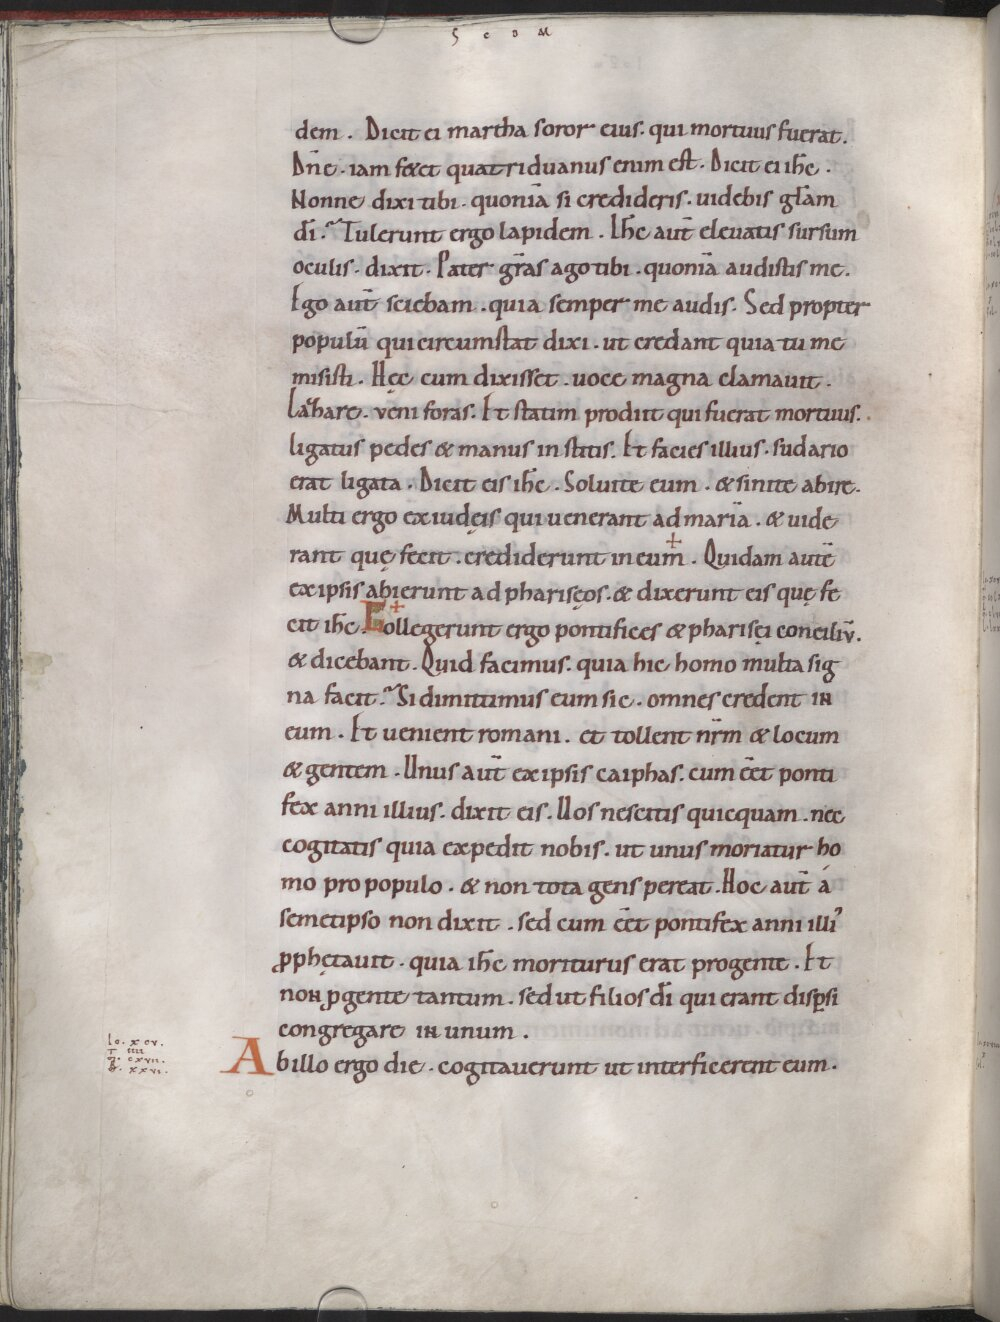 S C D M
dem . Dicit ei martha soror eius . qui mortuus fuerat .
Dñe . iam fętet quatriduanus enim est . Dicit ei ihc̄ .
Nonne dixi tibi . quoniā si credideris . uidebis głam
dī . Tulerunt ergo lapidem . Ihc̄ aut̄ eleuatis sursum
oculis . dixit . Pater gr̄as ago tibi . quoniā audistis me .
Ego aut̄ sciebam . quia semper me audis . Sed propter
populū qui circumstat dixi . ut credant quia tu me
misisti . Hęc cum dixisset . uoce magna clamauit .
Lazare . veni foras . Et statim prodiit qui fuerat mortuus .
ligatus pedes & manus institis . Et facies illius . sudario
erat ligata . Dicit eis ihc̄ . Soluite eum . & sinite abire .
Multi ergo ex iudęis qui uenerant ad mariā . & uide
rant quę fecit . crediderunt in eum . Quidam autē
ex ipsis abierunt ad pharisęos . & dixerunt eis quę fe
cit ihc̄ . Collegerunt ergo pontifices & pharisęi conciliū .
& dicebant . Quid facimus . quia hic homo multa sig
na facit . Si dimittimus eum sic . omnes credent in
eum . Et uenient romani . et tollent nr̄m & locum
& gentem . Unus aut̄ ex ipsis caiphas . cum eēt ponti
fex anni illius . dixit eis . Uos nescitis quicquam . nec
cogitatis quia expedit nobis . ut unus moriatur ho
mo pro populo . & non tota gens pereat . Hoc aut̄ á
semetipso non dixit . sed cum eēt pontifex anni illi᾽
ꝓphętauit . quia ihc̄ moriturus erat pro gente . Et
non ꝓ gente tantum . sed ut filios dī qui erant disꝑsi
congregaret in unum .
Ab illo ergo die . cogitauerunt ut interficerent eum .
Io. xcv.
T iiii